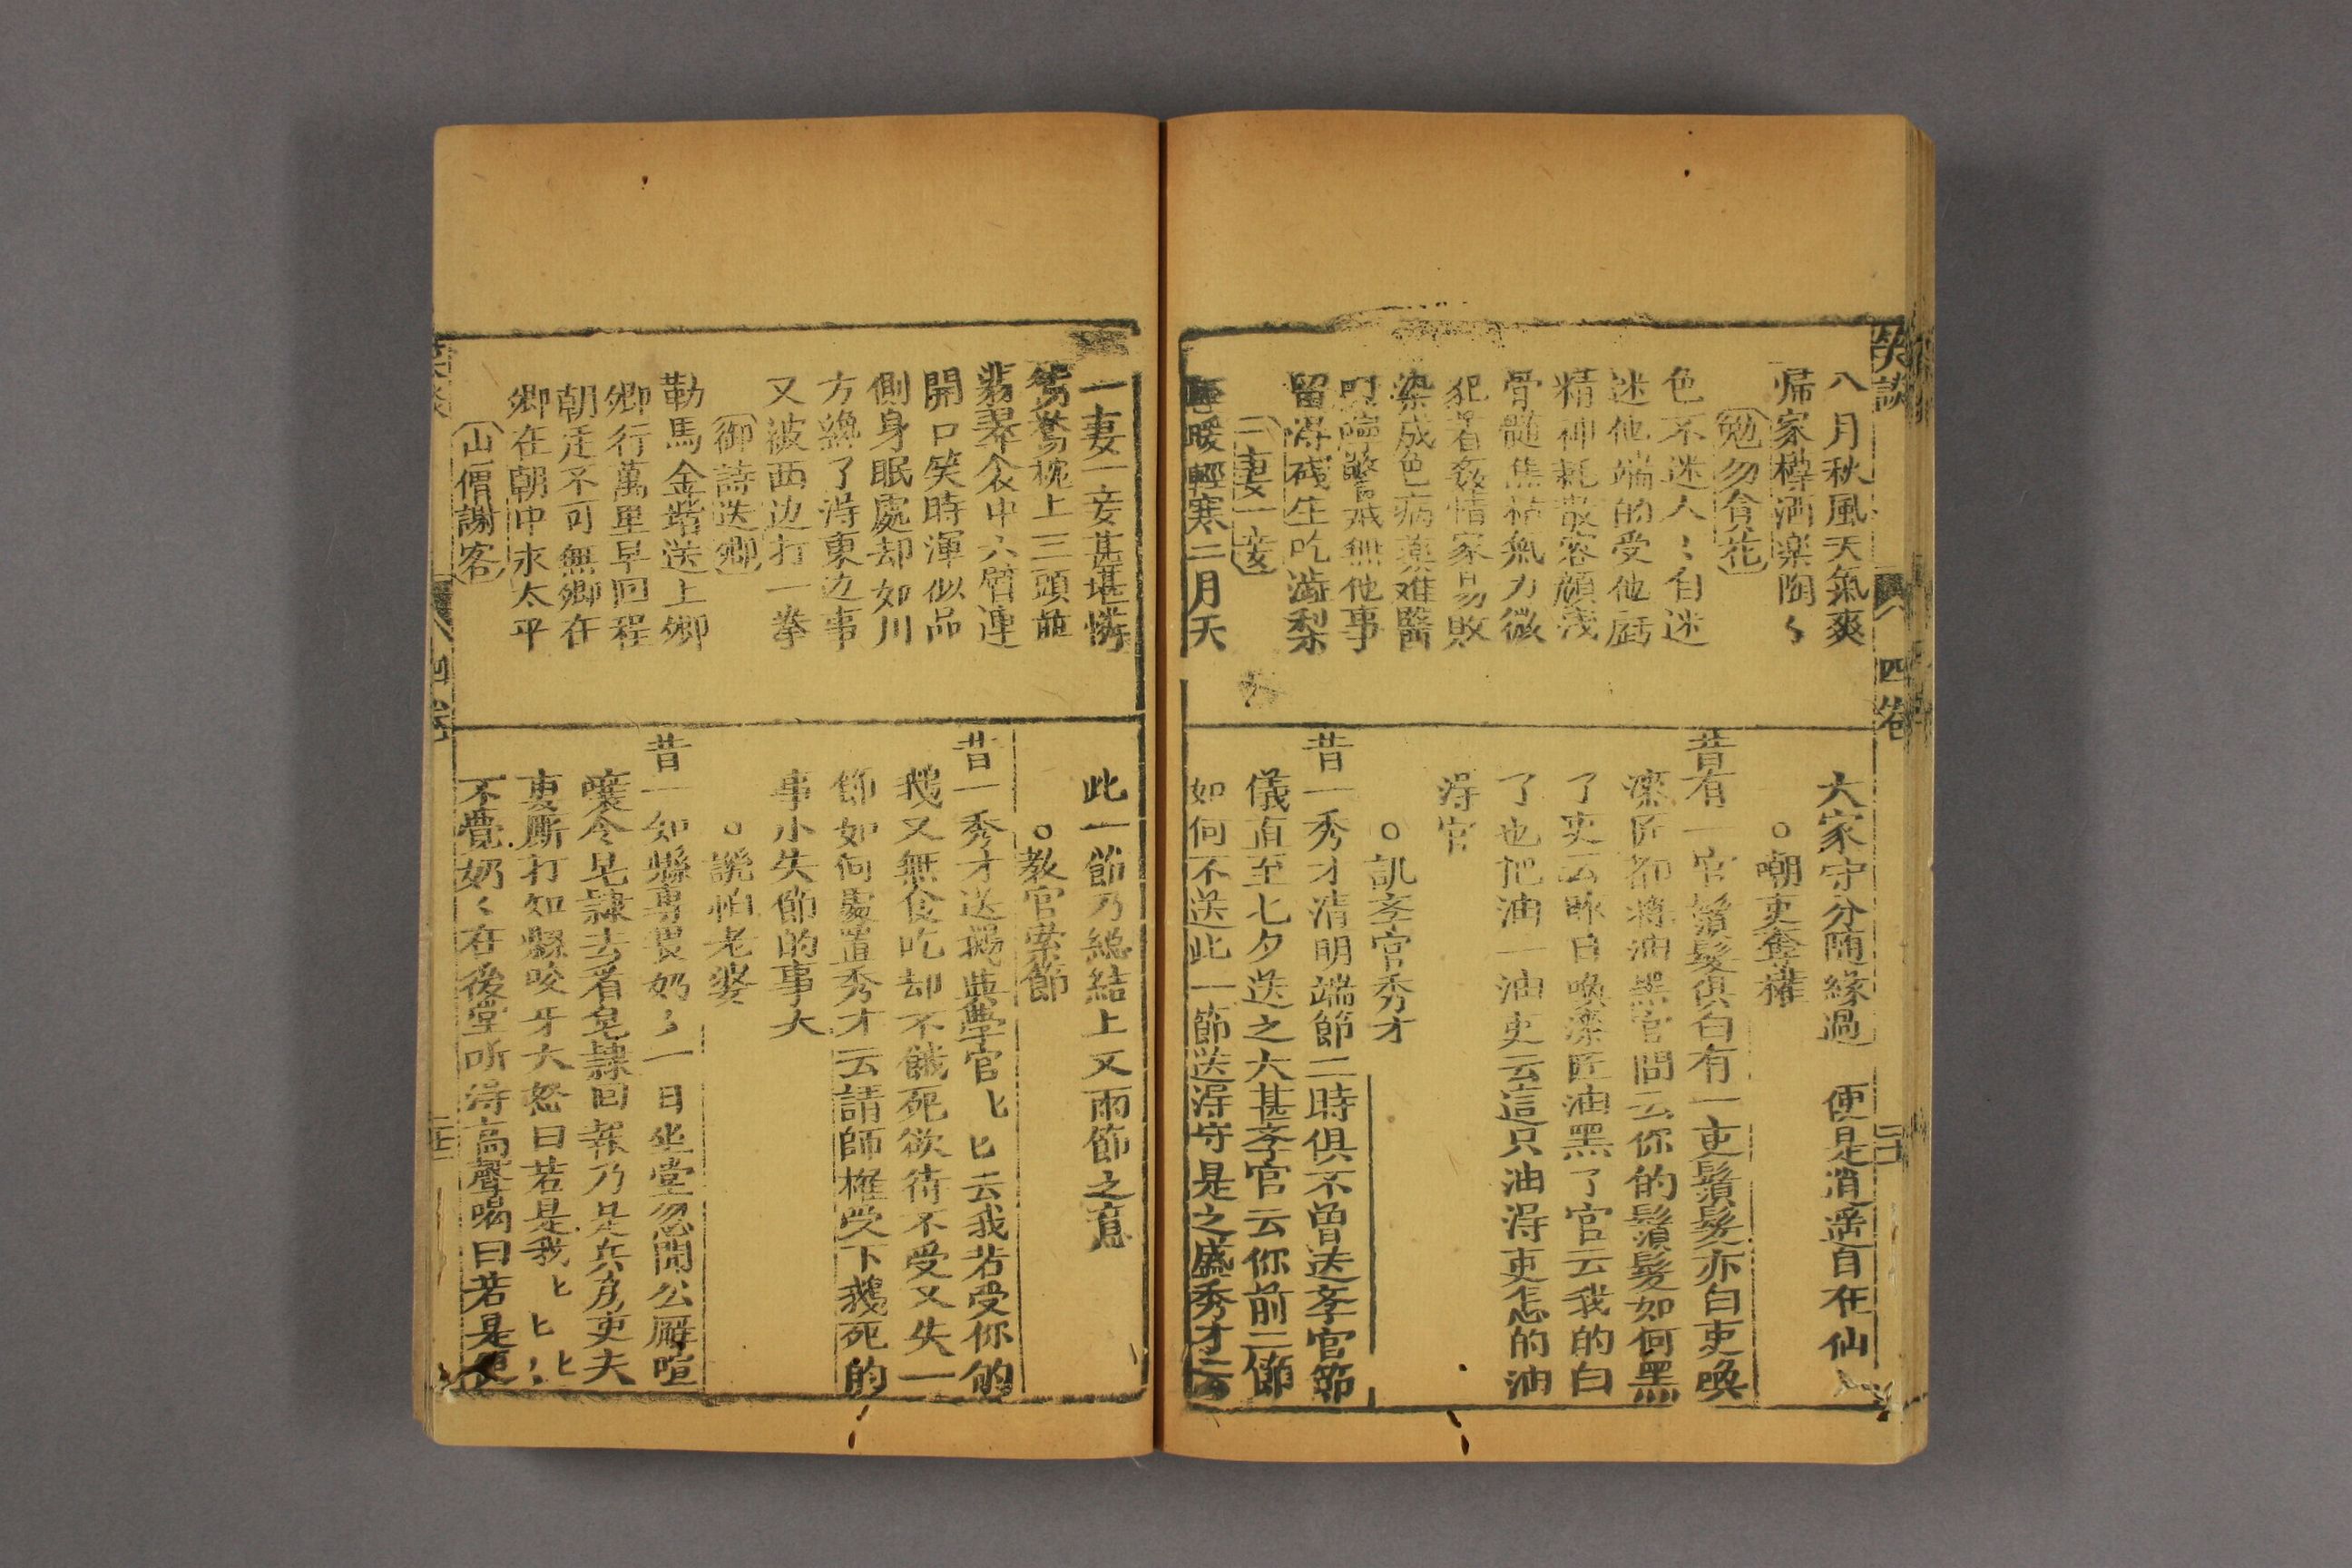 笑談
四卷
八月秋風天氣爽
帰家樽酒楽陶〻
勉勿貪花
色不迷人〻自迷
迷他端的受他虧
精神耗散容顔淺
骨髓焦枯氣力微
犯着姦情家易敗
染成色病藥难醫
無他事
留得殘生吃澁梨
一妻一妾
暖輕寒二月天
大家守分随緣過 便是消遥自在仙
○嘲吏奪權
昔有一官鬚髮俱白有一吏鬚髮亦白吏喚
漆匠都將油黑官問云你的鬚髮如何黑
了吏云昨日喚漆匠油黑了官云我的白
了也把油一油吏云這只油得吏怎的油
淂官
○訕斈官秀才
昔一秀才清明端節二時俱不曽送斈官節
儀直至七夕送之大甚斈官云你前二節
如何不送此一節送淂守是之盛秀才云
一妻一妾甚堪憐
鴛鴦枕上三頭並
翡翠衾中六臂連
開口笑時渾似品
側身眠處却如川
方纔了淂東边事
又彼西边打一拳
御詩送卿
勒馬金堦送上卿
卿行萬里早回程
朝廷不可無卿在
卿在朝中求太平
山僧謝客
此一節乃総結上文兩節之意
○教官索節
昔一秀才送鵝與學官〻〻云我若受你的
鵝又無食吃却不餓死欲待不受又失一
節如何處置秀才云請師權受下鵝死的
事小失節的事大
○譏怕老婆
昔一知縣專畏奶〻一日坐堂忽聞公廨喧
嚷令皂隷去看皂隷回報乃是兵房吏夫
妻厮打知縣咬牙大怒曰若是我〻〻〻
不覺奶〻在後堂听淂高聲喝曰若是便